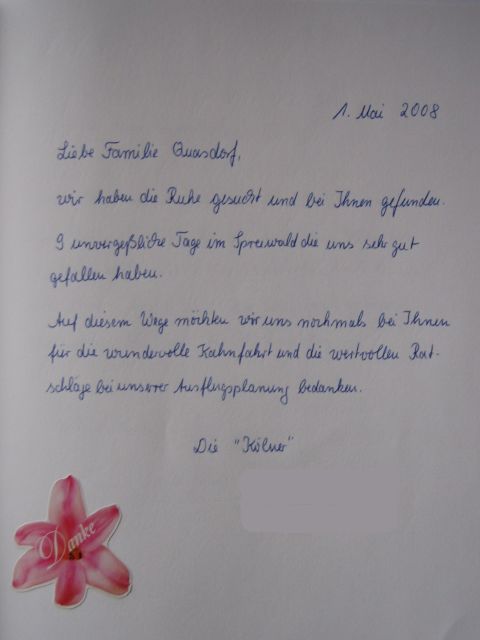 1. Mai 2008
Liebe Familie Quasdorf,
wir haben die Ruhe gesucht und bei Ihnen gefunden.
9 unvergeßliche Tage im Spreewald die uns sehr gut
gefallen haben.
Auf diesem Wege möchten wir uns nochmals bei Ihnen
für die wundervolle Kahnfahrt und die wertvollen Rat-
schläge bei unserer Ausflugsplanung bedanken.
Die "Kölner"
Danke